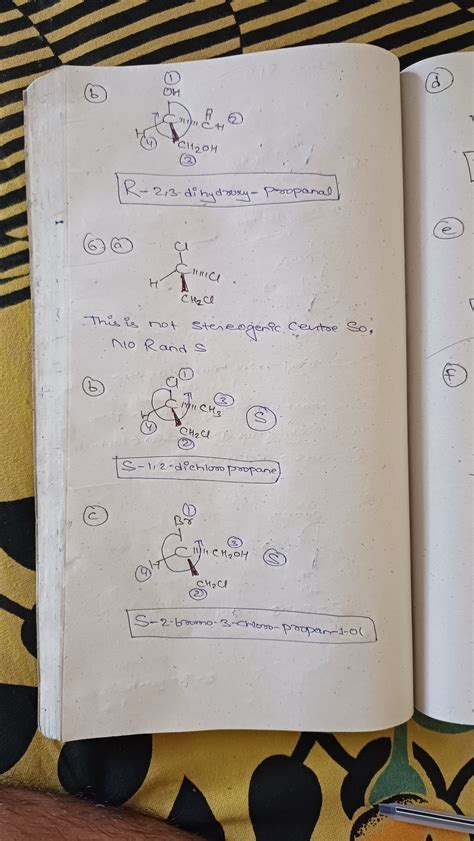 b
1
OH
C
H
4
C H
2
CH2OH
3
R-2,3-dihydroxy-propanal
6 a
Cl
C
Cl
H
CH2Cl
This is not stereogenic centre so,
no R and S
b
1
Cl
C
CH3
3
H
4
CH2Cl
2
S
S-1,2-dichloropropane
c
1
Br
C
CH2OH
3
H
4
CH2Cl
2
S
S-2-bromo-3-chloro-propan-1-ol
d
e
f